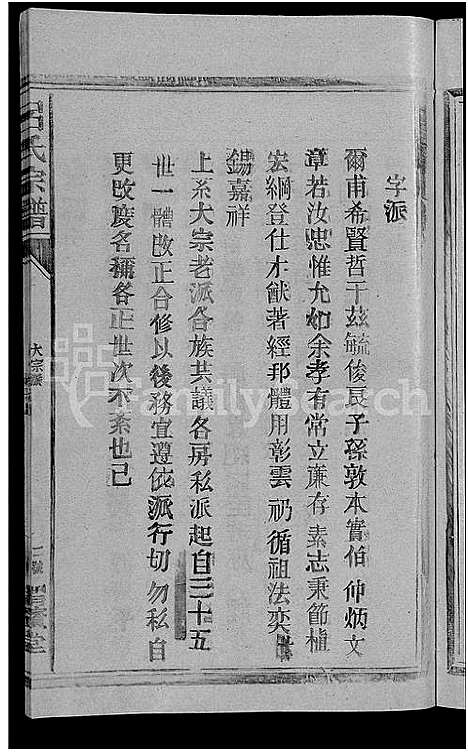 字派
爾甫希賢哲于茲毓俊良子孫敦本實伯仲炳文
章若汝忠惟允如余孝有常立廉存素志秉節植
宏綱登仕才猷著經邦體用彰雲礽循祖法奕
錫嘉祥
上系大宗老派各族共議各房私派起自三十五
世一體改正合修以後務宜遵依派行切勿私自
更改庶名稱各正世次不紊也已
呂氏宗譜
大宗派
堂
FamilySearch